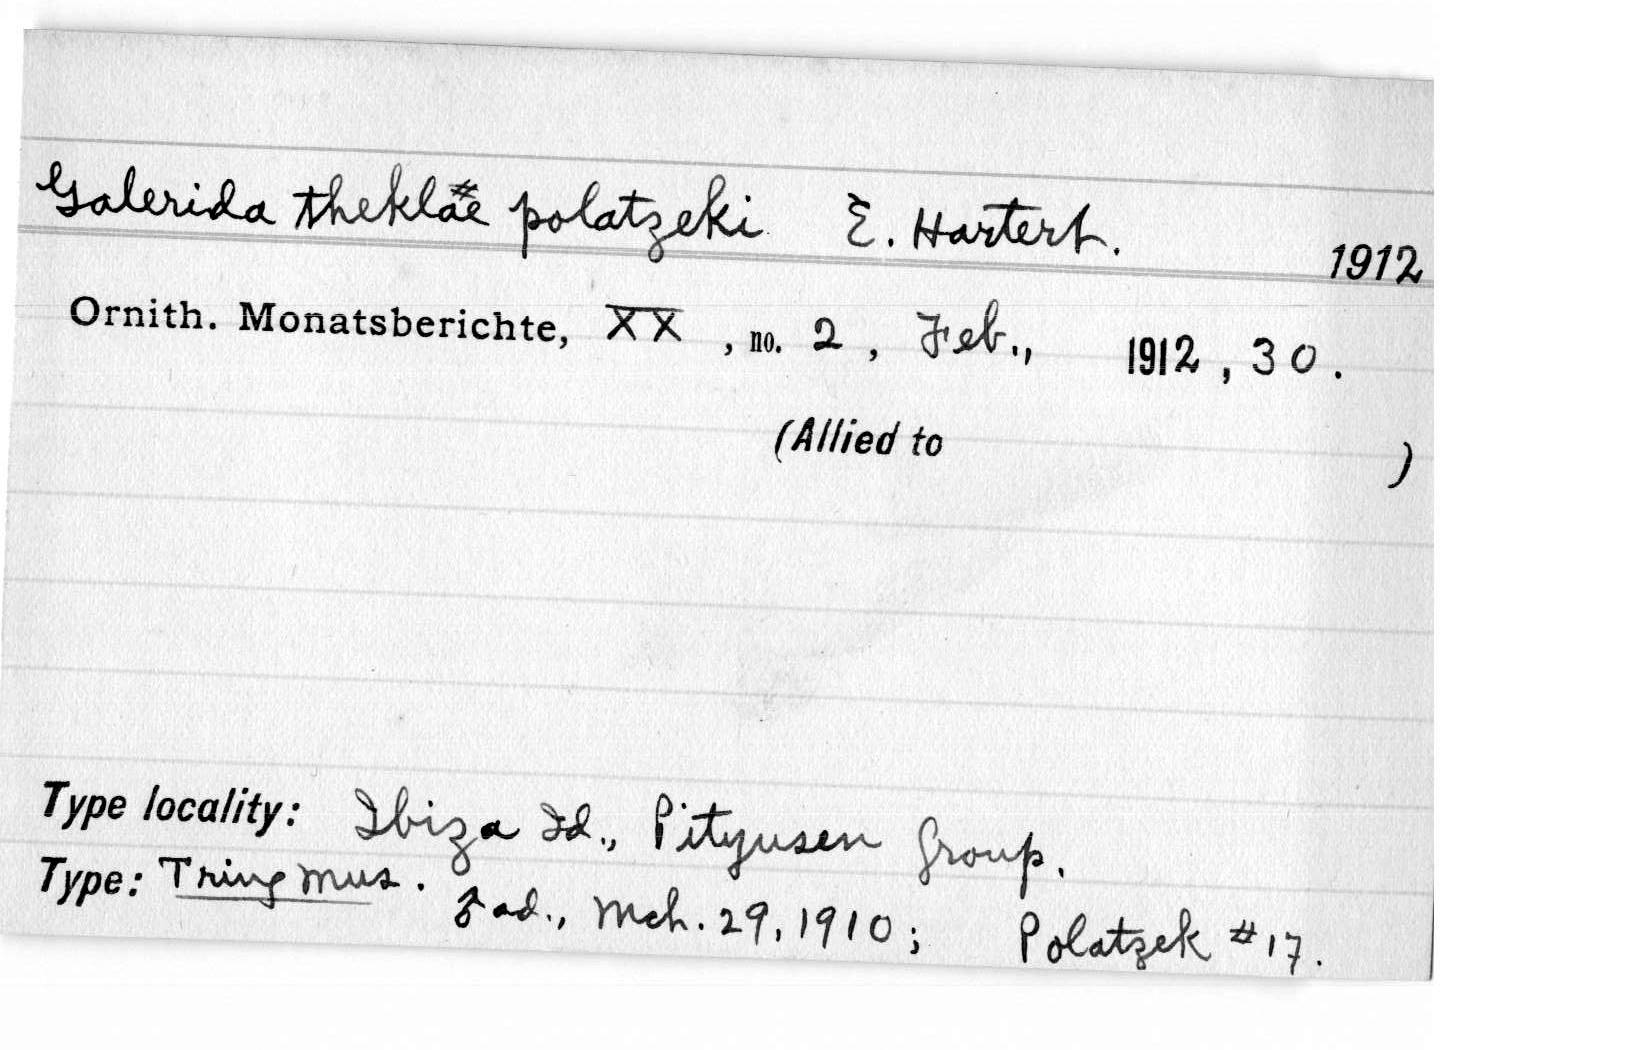 Galerida theklae# polatzeki E. Hartert. 1912
Ornith. Monatsberichte, XX, no. 2, Feb., 1912, 30.
(Allied to )
Type locality: Ibiza Id., Pityusen Group.
Type: Tring Mus. ♂ ad., Mch. 29, 1910; Polatzek #17.